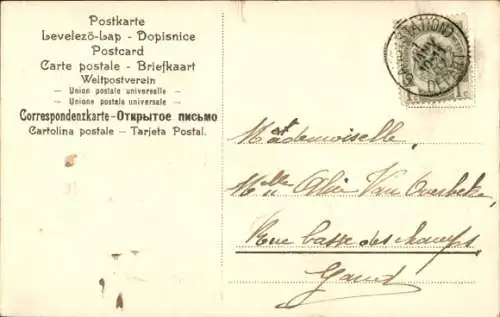 Postkarte
Levelező-Lap - Dopisnice
Postcard
Carte postale - Briefkaart
Weltpostverein
- Union postale universelle -
- Unione postale universale -
Correspondenzkarte - Открытое письмо
Cartolina postale - Tarjeta Postal.
GAND (STATION)
Mademoiselle,
Melle Van Overbeke,
Rue basse des champs,
Gand